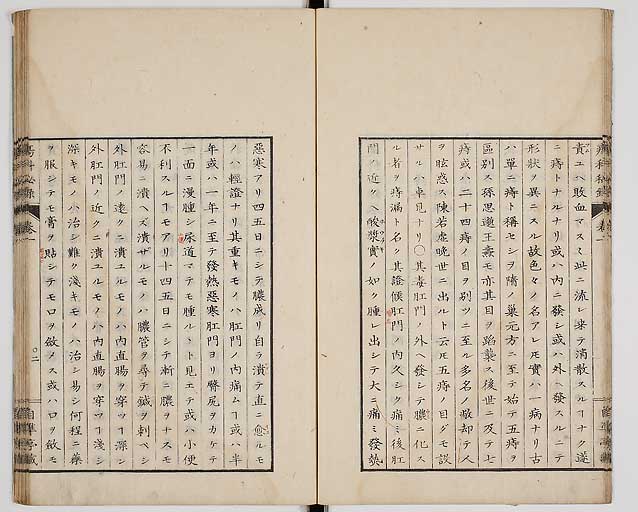 瘍科秘録 卷一
責ユヘニ敗血マスミ此ニ流レ来テ消散スルヿナク遂
ニ痔トナルナリ或ハ内ニ發シ或ハ外ヘ發スルニテ
形狀ヲ異ニスル故色々ノ名アレ𪜈實ハ一病ナリ古
ハ單ニ痔ト稱セシヲ隋ノ巢元方ニ至テ始テ五痔ヲ
區別ス孫思邈王燾モ亦其目ヲ蹈襲ス後世ニ及テ七
痔或ハ二十四痔ノ目ヲ別ツニ至ル多名ノ敞却テ人
ヲ眩惑ス陳若虚晩世ニ出ルト云𪜈五痔ノ目グモ説
サルハ卓見ナリ〇其毒肛門ノ外ヘ發シテ膿ニ化ス
ル者ヲ痔漏ト名ク其證候肛門ノ内久シク痛ミ後肛
門ノ近クヘ酸漿實ノ如ク腫レ出シテ大ニ痛ミ發熱
惡寒アリ四五日ニシテ膿成リ自ラ潰テ直ニ愈ルモ
ノハ輕證ナリ其重キモノハ肛門ノ内痛ムヿ或ハ半
年或ハ一年ニ至テ發熱惡寒肛門ヨリ臀尻ヲカケテ
一面ニ漫腫シ尿道マテモ腫ルヽト見エテ或ハ小便
不利スルヿモアリ十四五日ニシテ漸ニ膿ヲナスモ
容易ニ潰ヘズ潰ザルモノハ膿管ヲ尋テ鍼ヲ刺ベシ
外肛門ノ遠クニ潰ユルモノハ内直腸ヲ穿ツヿ深シ
外肛門ノ近クニ潰ユルモノハ内直腸ヲ穿ツヿ淺シ
深キモノハ治シ難ク淺キモノハ治シ易シ何程ニ藥
ヲ服シテモ膏ヲ貼シテモ口ヲ斂メス或ハ口ヲ斂モ
瘍科秘録 卷一 〇二 自準亭藏